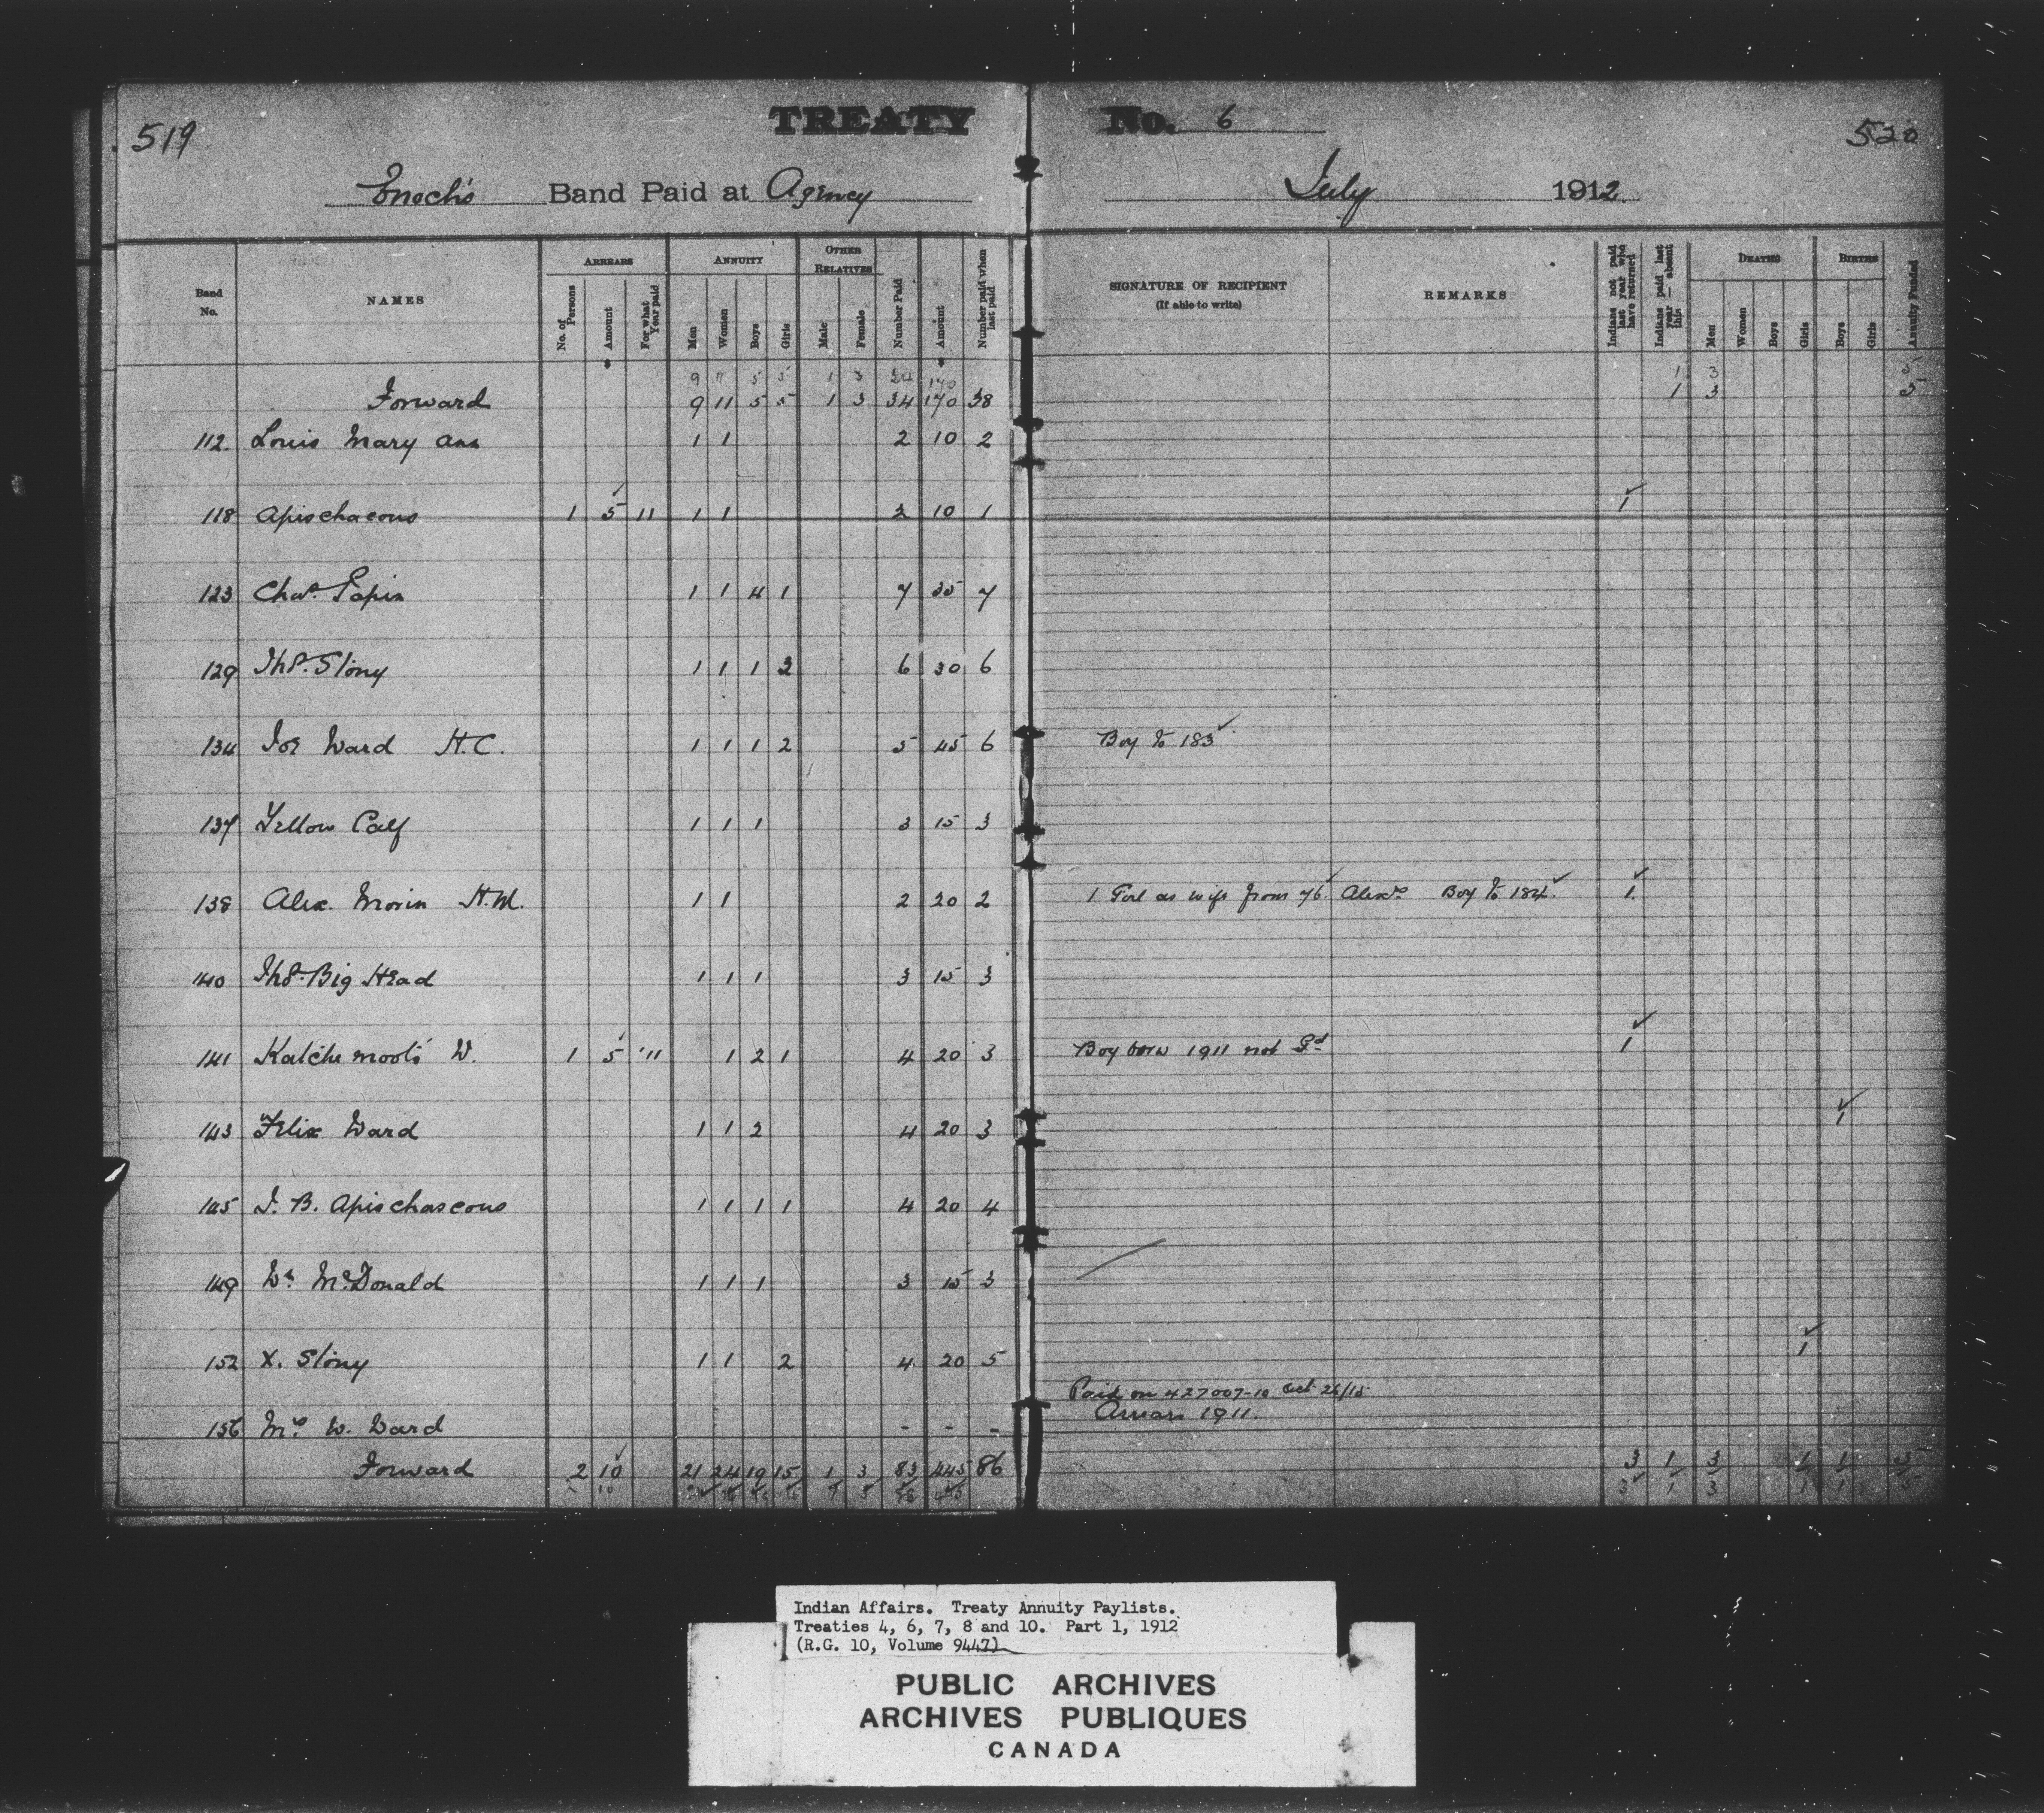 519 TREATY No. 6 520
Enoch's Band Paid at Agency July 1912
ARREARS ANNUITY OTHER RELATIVES DEATHS BIRTHS
Band No. NAMES No. of Persons Amount For what Year paid Men Women Boys Girls Male Female Number Paid Amount Number paid when last paid SIGNATURE OF RECIPIENT (If able to write) REMARKS Indians not paid last year who have returned Indians paid last year — absent this Men Women Boys Girls Boys Girls Annuity Funded
9 5 5 1 3 170 1 3
Forward 9 11 5 5 1 3 34 170 38 1 3
112. Louis Mary Ann 1 1 2 10 2
118 Apischacous 1 5 11 1 1 2 10 1 1
123 Chas. Papin 1 1 4 1 7 35 7
129 Ths. Stony 1 1 1 3 6 30 6
134 Joe Ward H.C. 1 1 1 2 5 45 6 Boy to 183
137 Yellow Calf 1 1 1 3 15 3
138 Alex. Morin H.M. 1 1 2 20 2 1 Girl as wife from 76. Boy to 184. 1
140 Ths. Big Head 1 1 1 3 15 3
141 Katchemoot's W. 1 5 '11 1 2 1 4 20 3 Boy born 1911 not Pd 1
143 Felix Ward 1 1 2 4 20 3 1
145 J. B. Apischascous 1 1 1 1 4 20 4
149 Wm McDonald 1 1 1 3 15 3
152 X. Stony 1 1 2 4 20 5 1
Paid on 427007-10 Oct 26/15
156 Mrs W. Ward - - - Arrears 1911.
Forward 2 10 21 24 19 15 1 3 83 445 86 3 1 3 1 1
3 1 3 1 1
Indian Affairs. Treaty Annuity Paylists.
Treaties 4, 6, 7, 8 and 10. Part 1, 1912
(R.G. 10, Volume 9447)
PUBLIC ARCHIVES
ARCHIVES PUBLIQUES
CANADA